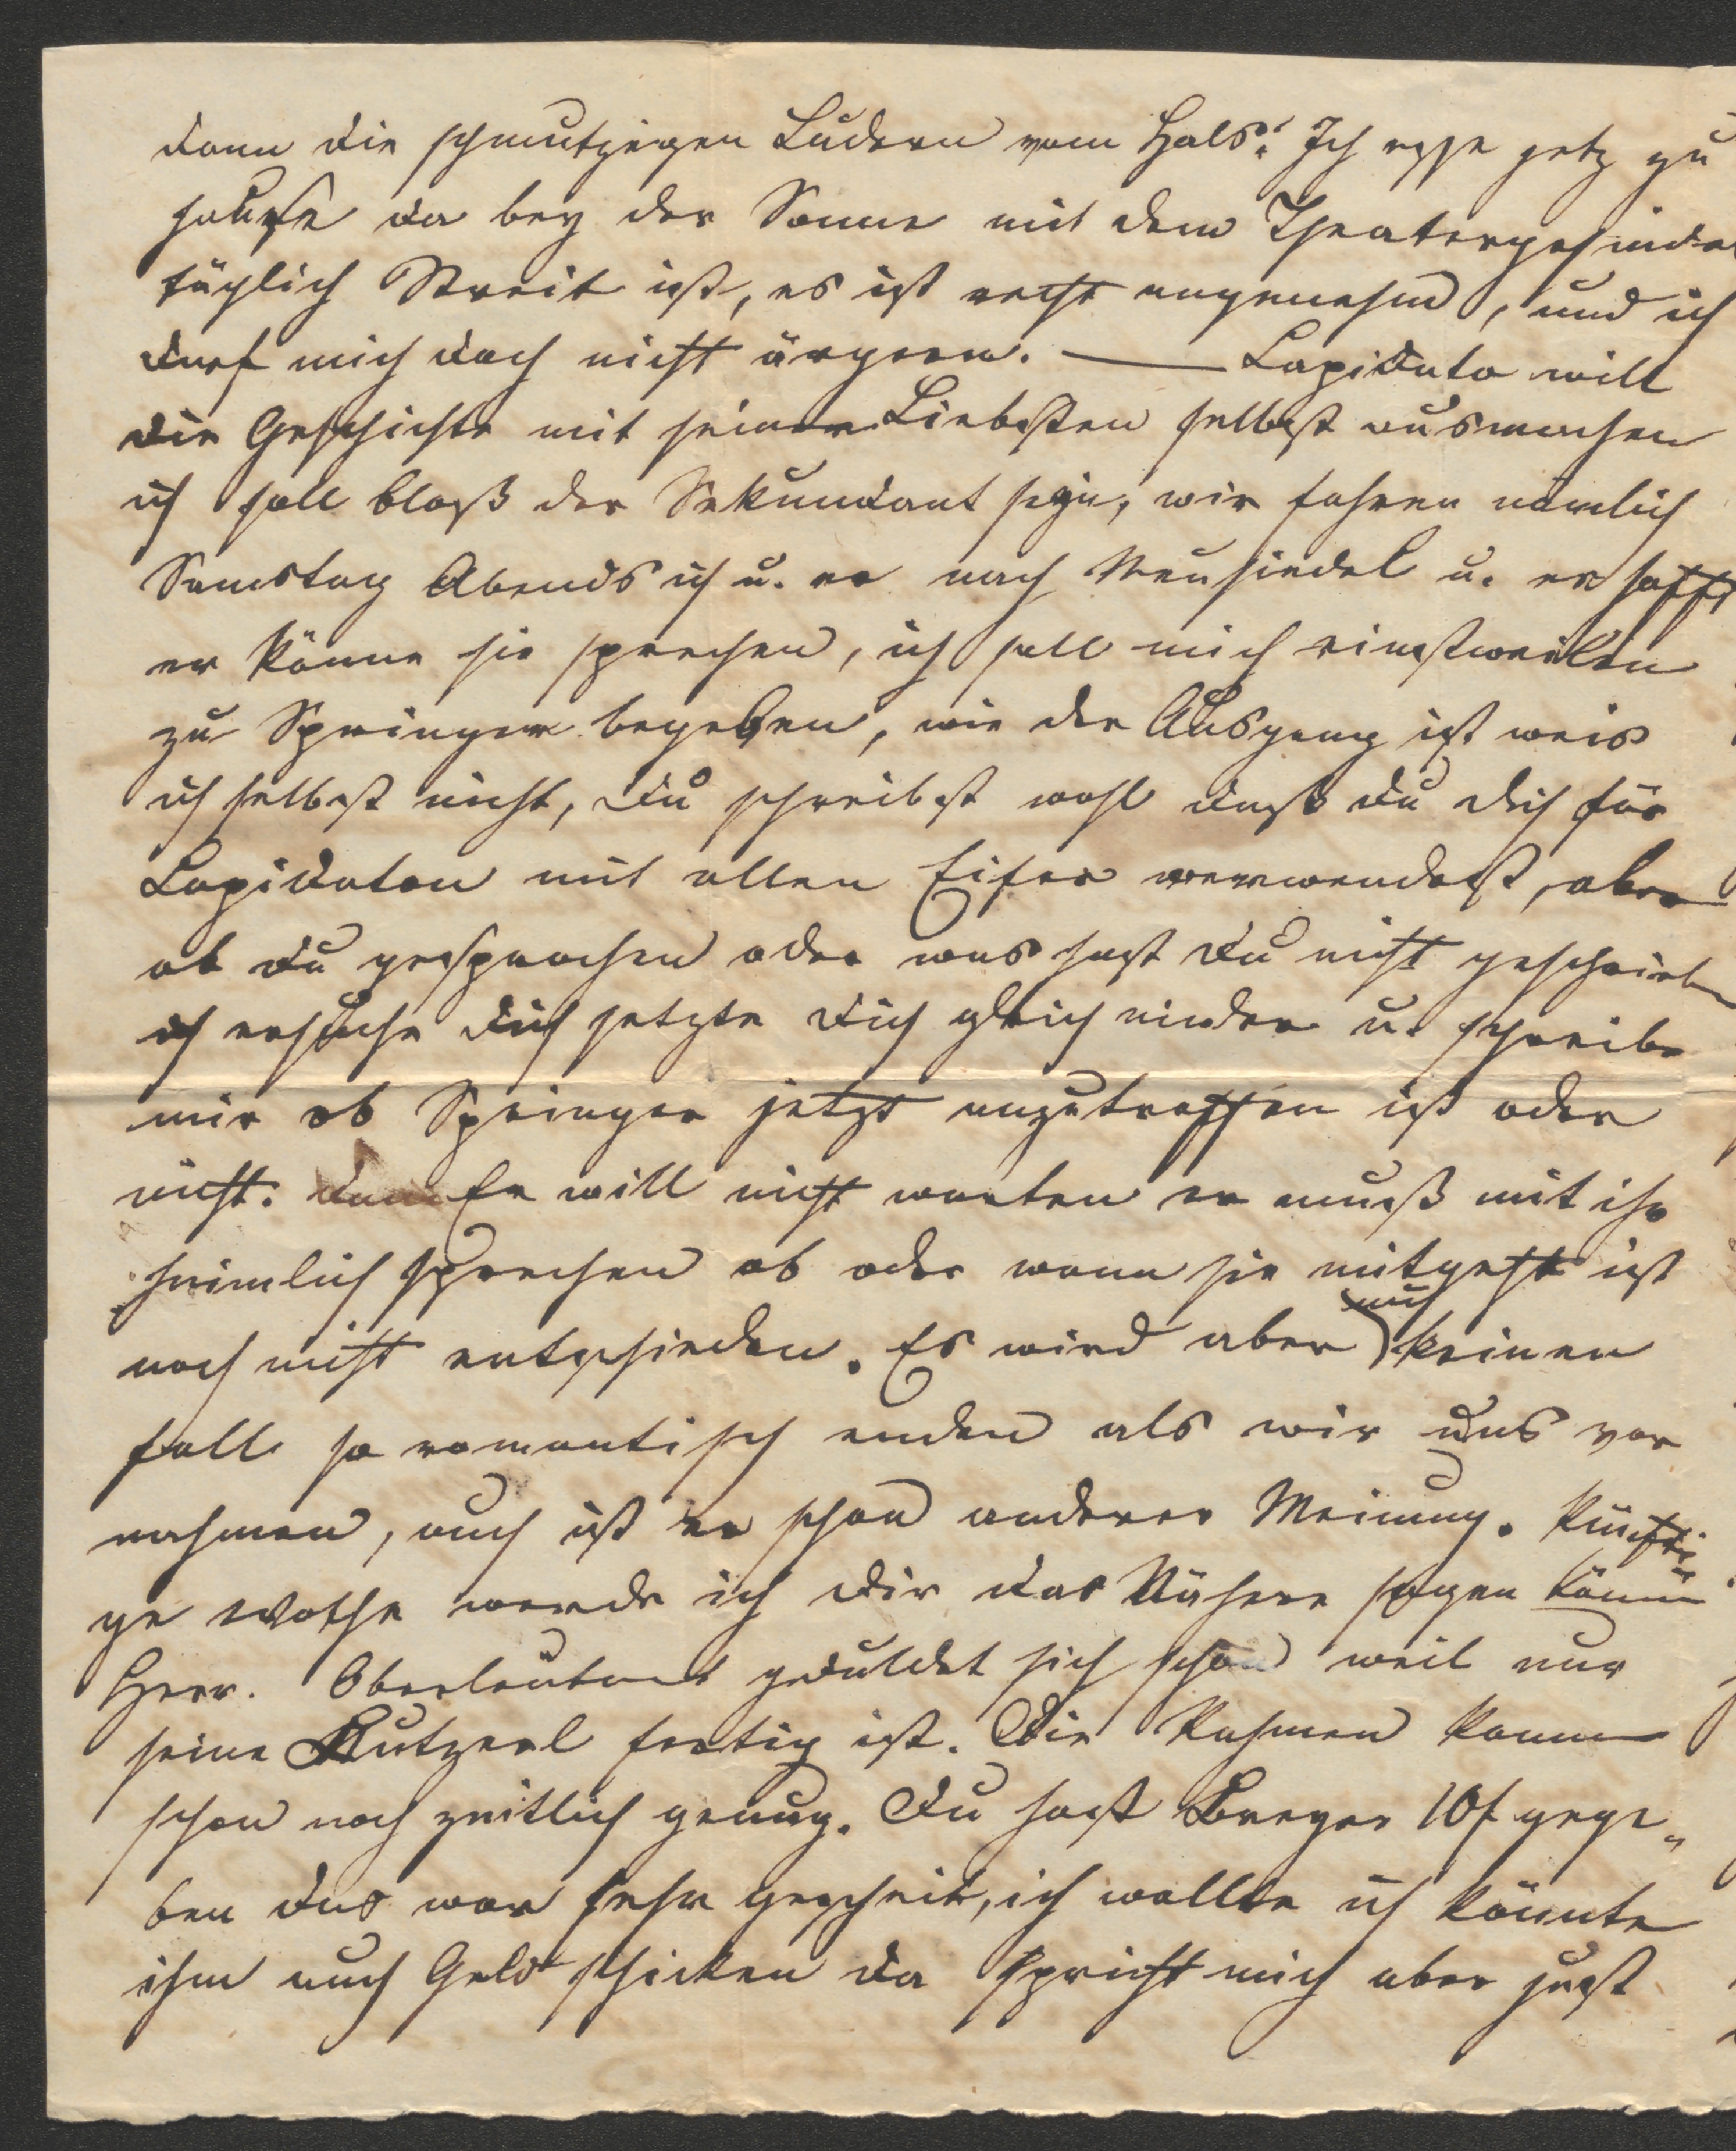 dann die schmutzigen Ludern vom Hals! Ich esse jetz zu
hause da bey der Sonne mit dem Theatergesindel
täglich Streit ist, es ist recht angenehm, und ich
darf mich doch nicht ärgern. — Lapidato will
die Geschichte mit seiner Liebsten selbst ausmachen
ich soll bloß der Sekundant seyn, wir fahren nämlich
Samstag Abends ich u. er nach Neusiedel u. er hofft
er könne sie sprechen, ich soll mich einstweilen
zu Springer begeben, wie der Ausgang ist weis
ich selbst nicht, du schreibst wohl daß du dich für
Lapidaten mit allen Eifer verwendest, aber
ob du gesprochen oder was hast du nicht geschrieben
ich ersuche dich setzte dich gleich nieder u. schreibe
mir ob Springer jetzt anzutreffen ist oder
nicht. Er will nicht warten er muß mit ihr
heimlich sprechen ob oder wann sie mitgeht ist
noch nicht entschieden. Es wird aber auf keinen
fall so romantisch enden als wir uns vor
nahmen, auch ist er schon anderer Meinung. Künfti
ge Woche werde ich dir das Nähere sagen können
Herr. Oberleutnant geduldet sich schon weil nur
seine Kutzerl fertig ist. Die Rahmen kommen
schon noch zeitlich genug. Du hast Breyer 10f gege„
ben das war sehr gescheit, ich wollte ich könnte
ihm auch Geld schicken da spricht mich aber just